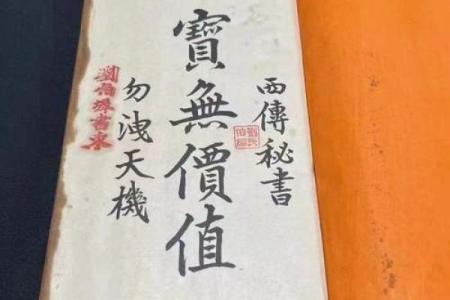 西傳秘書
寶無價值
勿洩天機